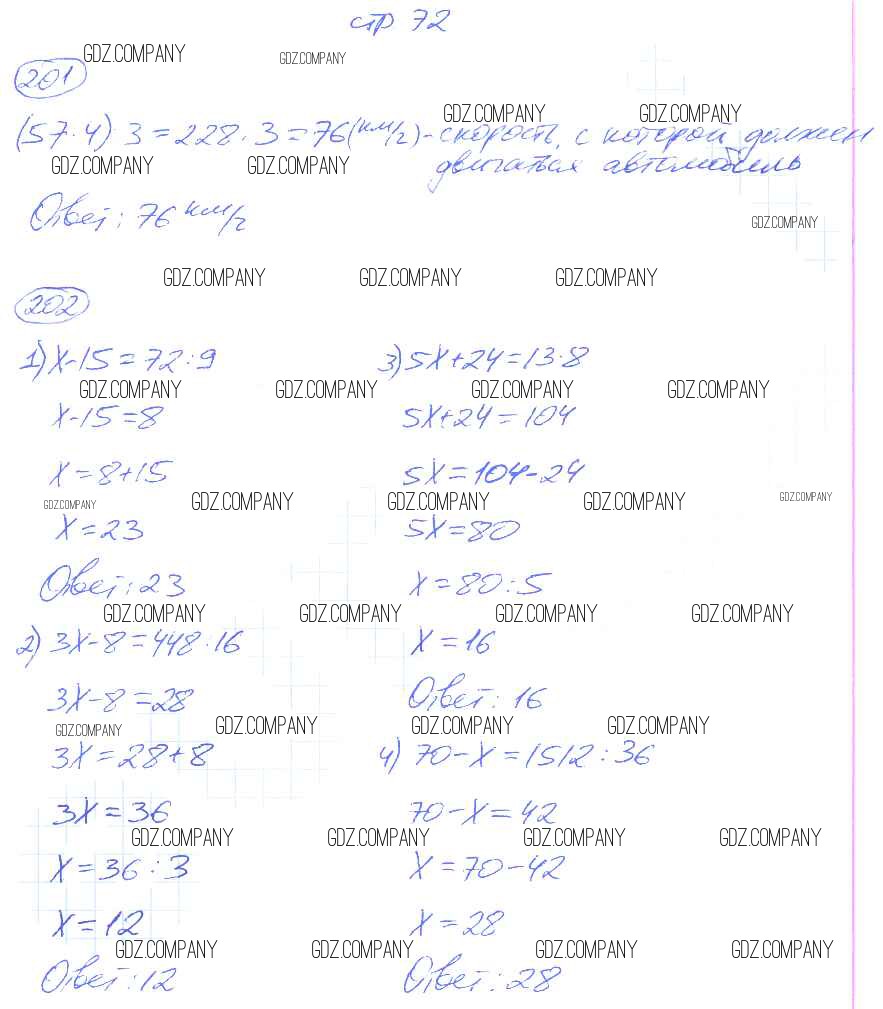 стр 72
GDZ.COMPANY GDZ.COMPANY
201
GDZ.COMPANY GDZ.COMPANY
(57·4)·3=228·3=76(км/г)-скорость, с которой должен
GDZ.COMPANY GDZ.COMPANY
двигаться автомобиль
Ответ: 76 км/г
GDZ.COMPANY
GDZ.COMPANY GDZ.COMPANY GDZ.COMPANY
202
1) x-15=72:9
GDZ.COMPANY GDZ.COMPANY
x-15=8
x=8+15
GDZ.COMPANY GDZ.COMPANY
x=23
Ответ: 23
GDZ.COMPANY GDZ.COMPANY
2) 3x-8=448·16
3x-8=28
GDZ.COMPANY GDZ.COMPANY
3x=28+8
3x=36
GDZ.COMPANY
x=36:3
x=12
GDZ.COMPANY
Ответ: 12
3) 5x+24=13·8
GDZ.COMPANY GDZ.COMPANY
5x+24=104
5x=104-24
GDZ.COMPANY GDZ.COMPANY GDZ.COMPANY
5x=80
x=80:5
GDZ.COMPANY GDZ.COMPANY
x=16
Ответ: 16
GDZ.COMPANY GDZ.COMPANY
4) 70-x=1512:36
70-x=42
GDZ.COMPANY GDZ.COMPANY GDZ.COMPANY
x=70-42
x=28
GDZ.COMPANY GDZ.COMPANY GDZ.COMPANY
Ответ: 28